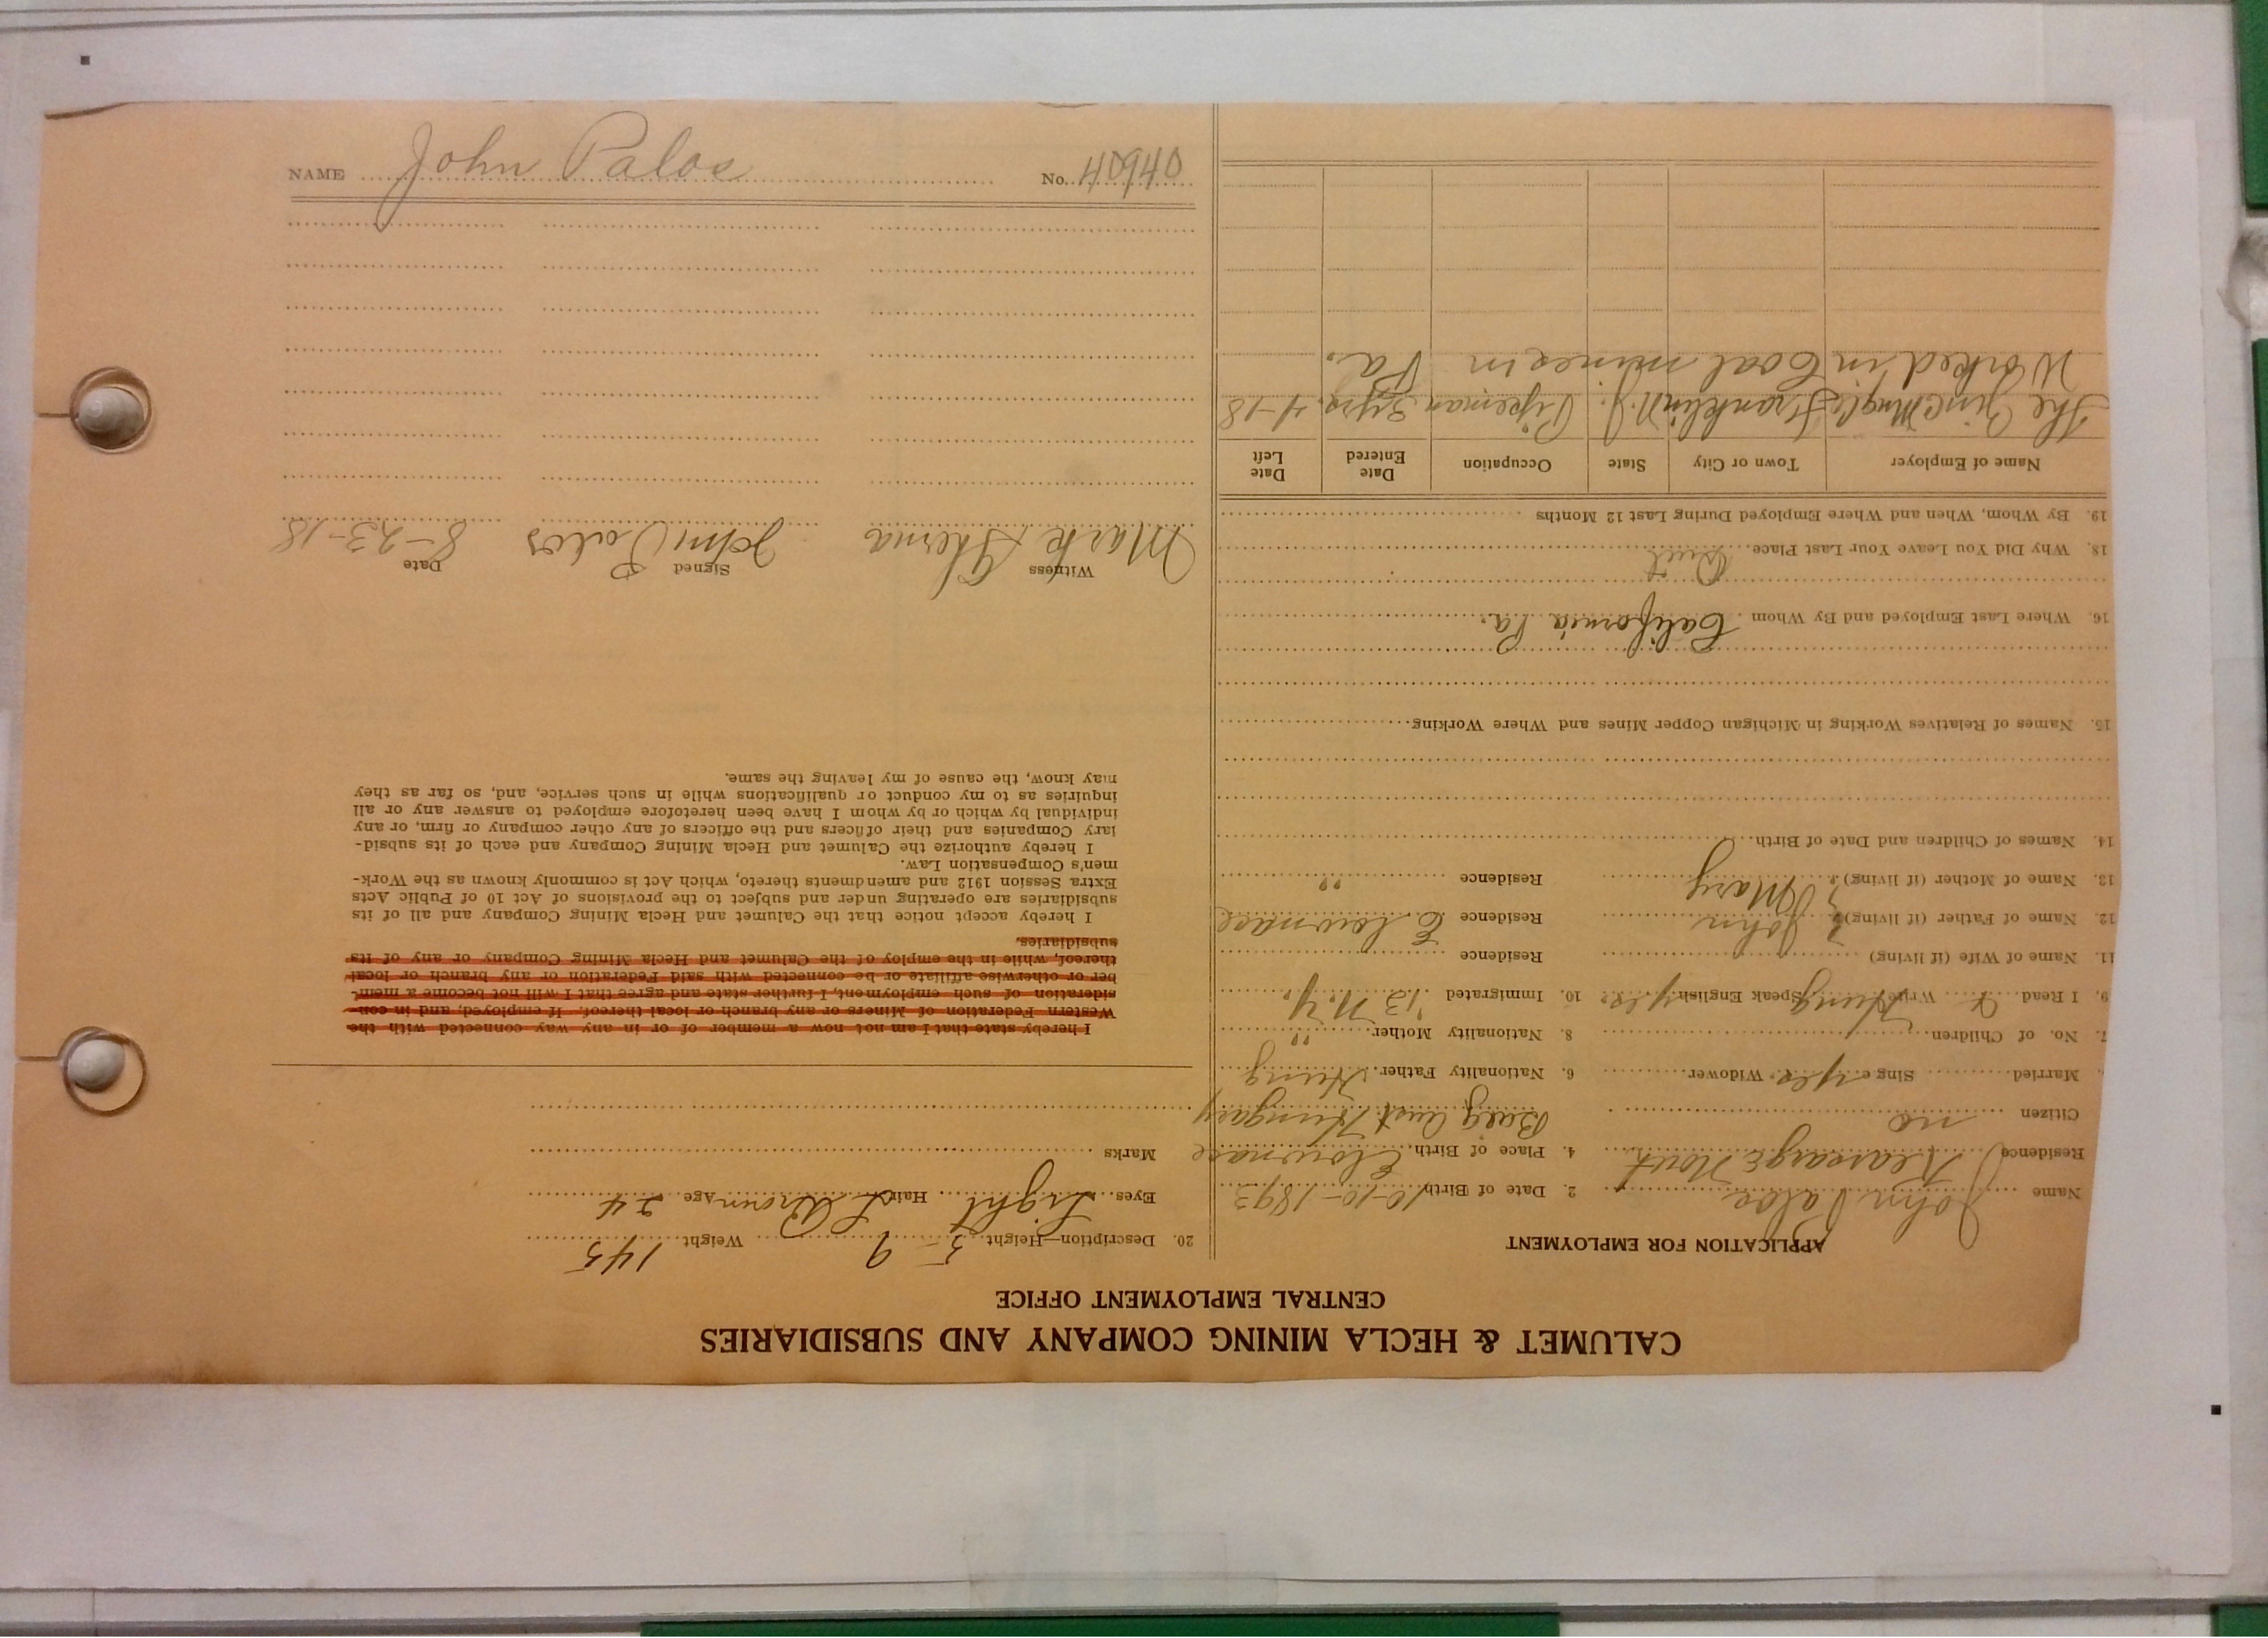 NAME John Palos No. 40940
CALUMET & HECLA MINING COMPANY AND SUBSIDIARIES
CENTRAL EMPLOYMENT OFFICE
APPLICATION FOR EMPLOYMENT
Name John Palos 2. Date of Birth 10-10-1893
Residence Kearsarge 4. Place of Birth
Citizen no Aust Hungary
Married Single yes. Widower 6. Nationality Father Hung
7. No. of Children 8. Nationality Mother "
9. I Read & Write Hung Speak English yes. 10. Immigrated '13 N.Y.
11. Name of Wife (if living) Residence
12. Name of Father (if living) John Residence
13. Name of Mother (if living) Mary Residence "
14. Names of Children and Date of Birth
15. Names of Relatives Working in Michigan Copper Mines and Where Working
16. Where Last Employed and By Whom California Pa.
18. Why Did You Leave Your Last Place Quit
19. By Whom, When and Where Employed During Last 12 Months
Name of Employer Town or City State Occupation Date Entered Date Left
The Zinc Franklin N.J. Pipeman 3 yrs. 4-18
Worked in Coal mines in Pa.
20. Description—Height 5-9 Weight 145
Eyes Light Hair L Brown Age 24
Marks
I hereby state that I am not now a member of or in any way connected with the
Western Federation of Miners or any branch or local thereof. If employed, and in con-
sideration of such employment, I further state and agree that I will not become a mem-
ber or otherwise affiliate or be connected with said Federation or any branch or local
thereof, while in the employ of the Calumet and Hecla Mining Company or any of its
subsidiaries.
I hereby accept notice that the Calumet and Hecla Mining Company and all of its
subsidiaries are operating under and subject to the provisions of Act 10 of Public Acts
Extra Session 1912 and amendments thereto, which Act is commonly known as the Work-
men's Compensation Law.
I hereby authorize the Calumet and Hecla Mining Company and each of its subsid-
iary Companies and their officers and the officers of any other company or firm, or any
individual by which or by whom I have been heretofore employed to answer any or all
inquiries as to my conduct or qualifications while in such service, and, so far as they
may know, the cause of my leaving the same.
Witness Signed Date
Mark John Palos 8-23-18